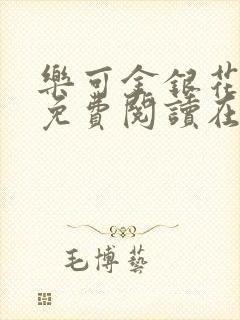 樂可金銀花
免費閱讀在
毛博藝